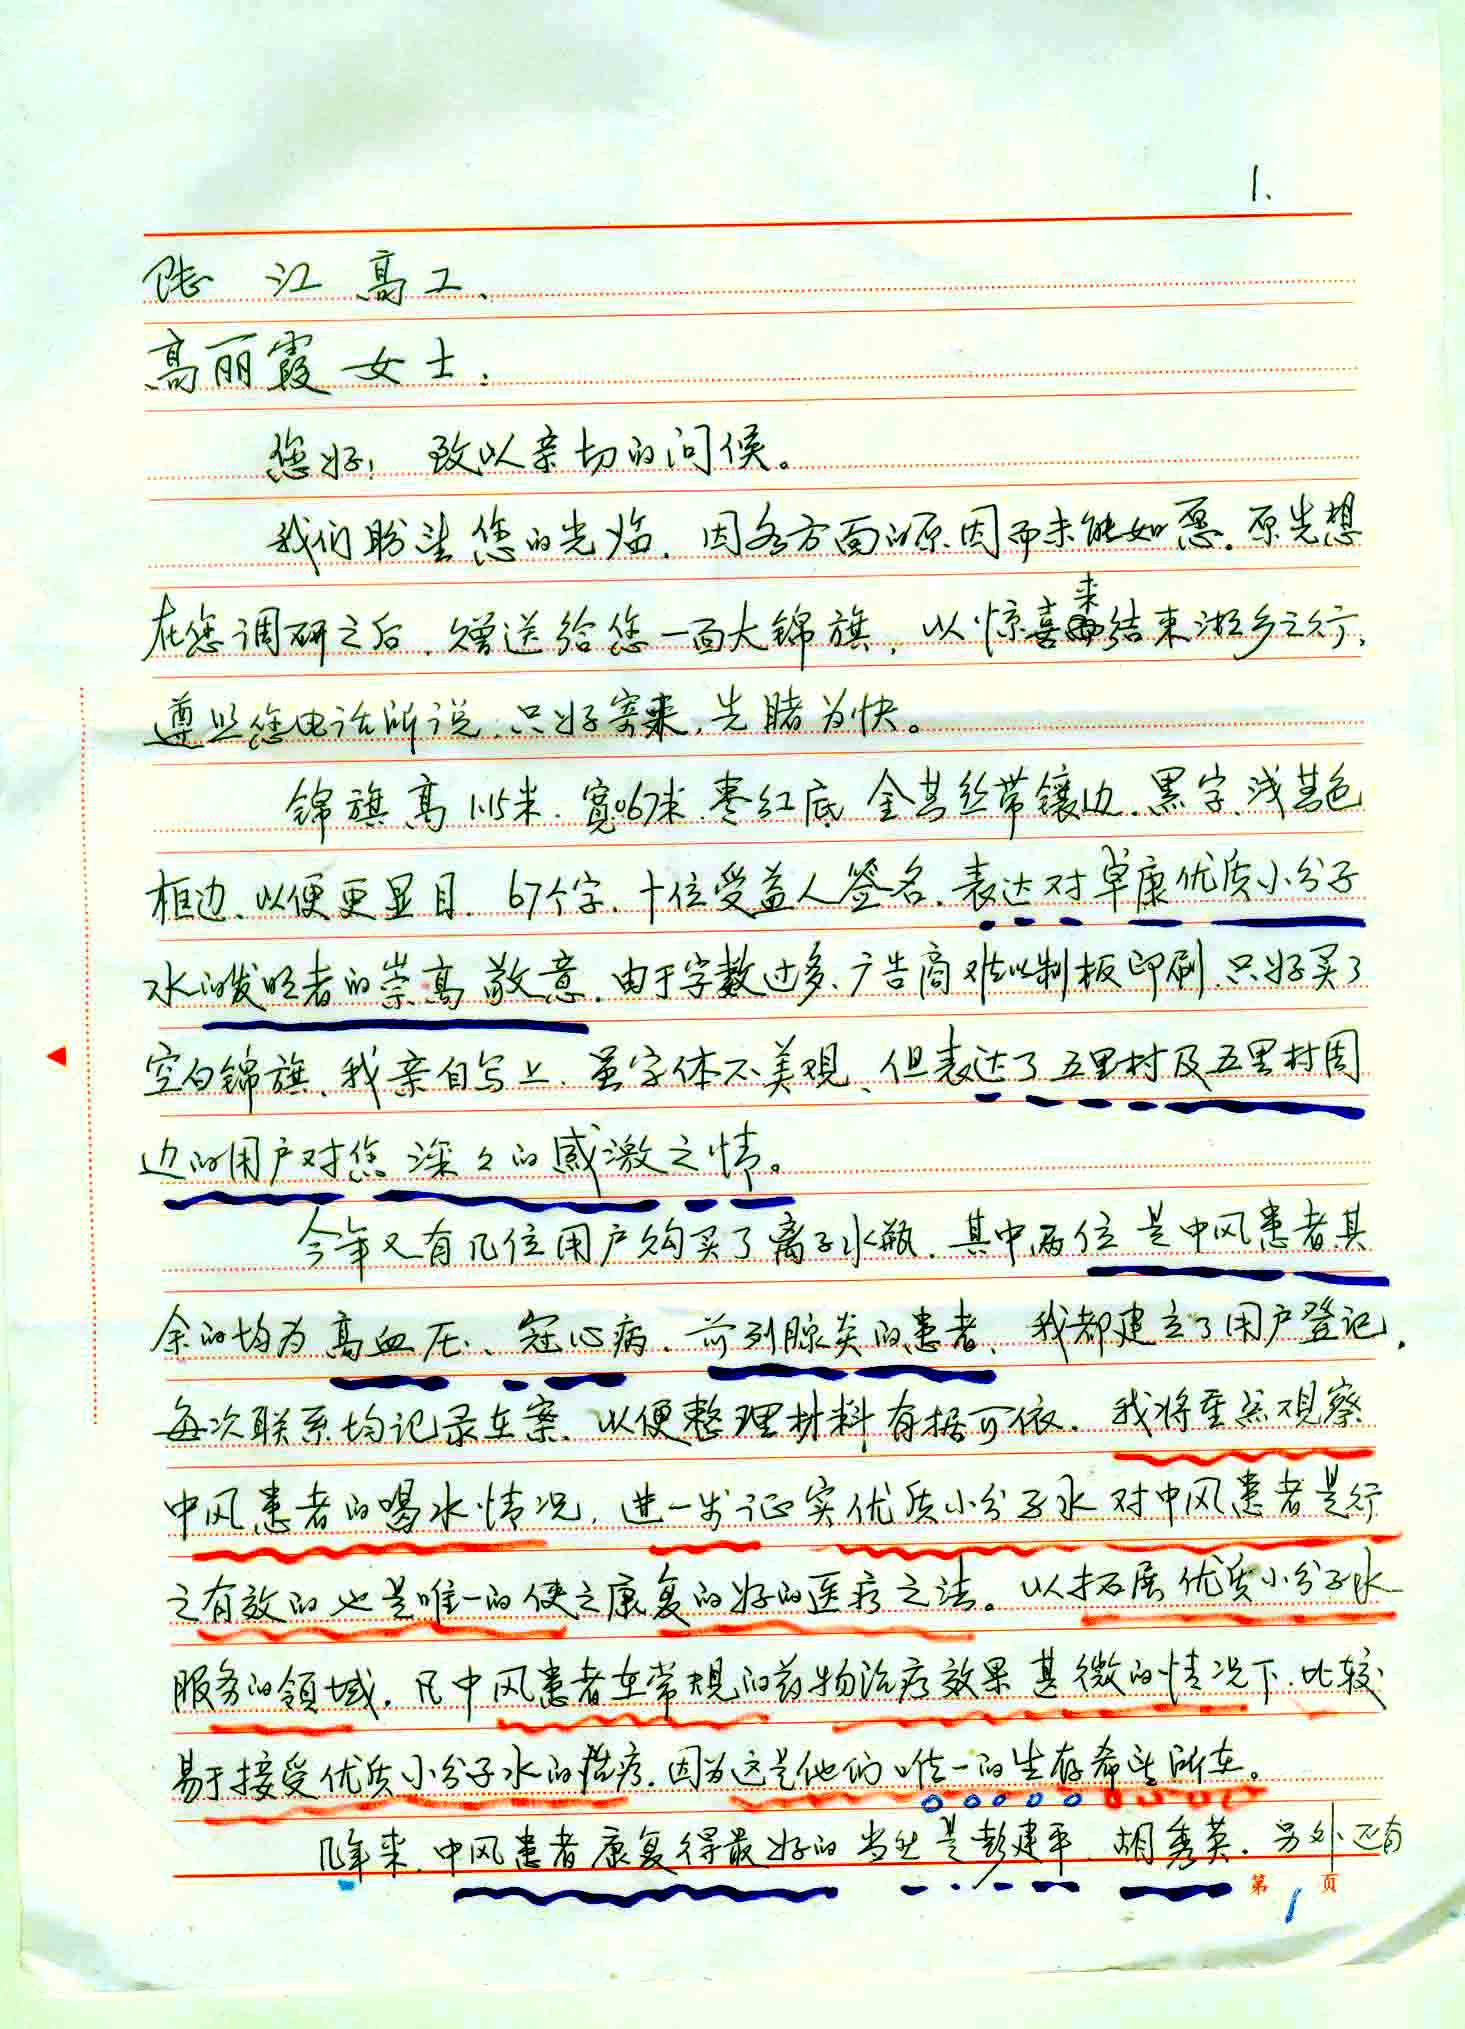 1.
陆 江 高工、
高丽霞 女士:
您好! 致以亲切的问候。
我们盼望您的光临，因各方面的原因而未能如愿。原先想
在您调研之后，赠送给您一面大锦旗，以惊喜来结束湘乡之行，
遵照您电话所说，只好寄来，先睹为快。
锦旗高1.15米，宽0.67米，枣红底，金黄丝带镶边，黑字，浅黄色
框边、以便更显目。67个字，十位受益人签名，表达对卓康优质小分子
水的发明者的崇高敬意。由于字数过多、广告商难以制板印刷，只好买了
空白锦旗，我亲自写上，虽字体不美观、但表达了五里村及五里村周
边的用户对您深々的感激之情。
今年又有几位用户购买了离子水瓶，其中两位是中风患者，其
余的均为高血压、冠心病、前列腺炎的患者、我都建立了用户登记，
每次联系均记录在案，以便整理材料有据可依，我将重点观察
中风患者的喝水情况，进一步证实优质小分子水对中风患者是行
之有效的也是唯一的使之康复的好的医疗之法。以拓展优质小分子水
服务的领域，凡中风患者在常规的药物治疗效果甚微的情况下，比较
易于接受优质小分子水的治疗，因为这是他们唯一的生存希望所在。
几年来，中风患者康复得最好的当然是彭建平、胡秀英，另外还有
第 1 页